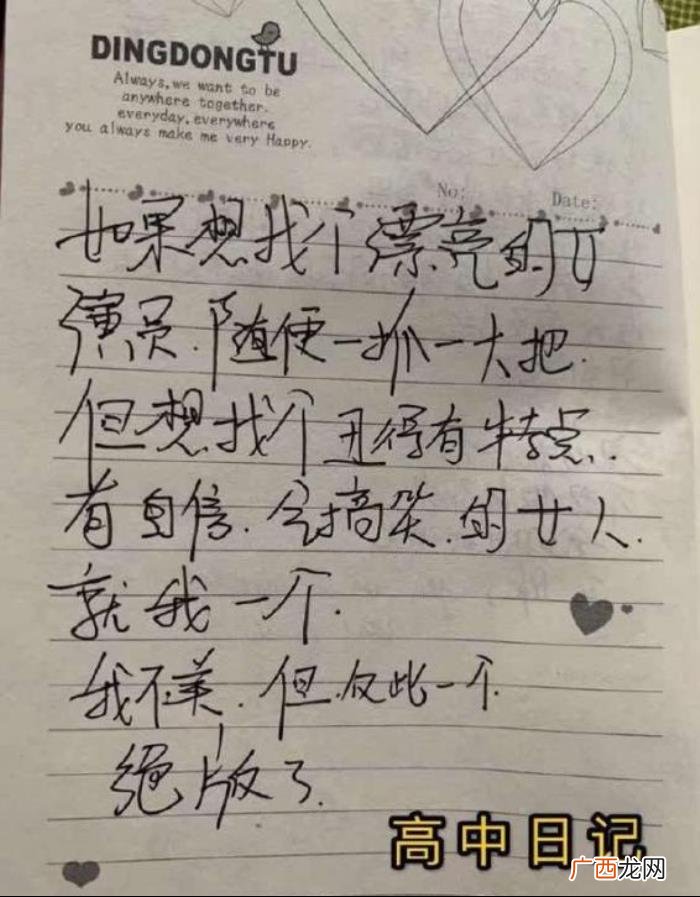 DINGDONGTU
Always,we want to be
anywhere together.
everyday,everywhere
you always make me very Happy.
No:
Date:
如果想找个漂亮的女
演员.随便一抓一大把.
但想找个丑得有特点.
有自信.会搞笑.的女人.
就我一个.
我不美.但.仅此一个.
绝版了.
高中日记
广西龙网